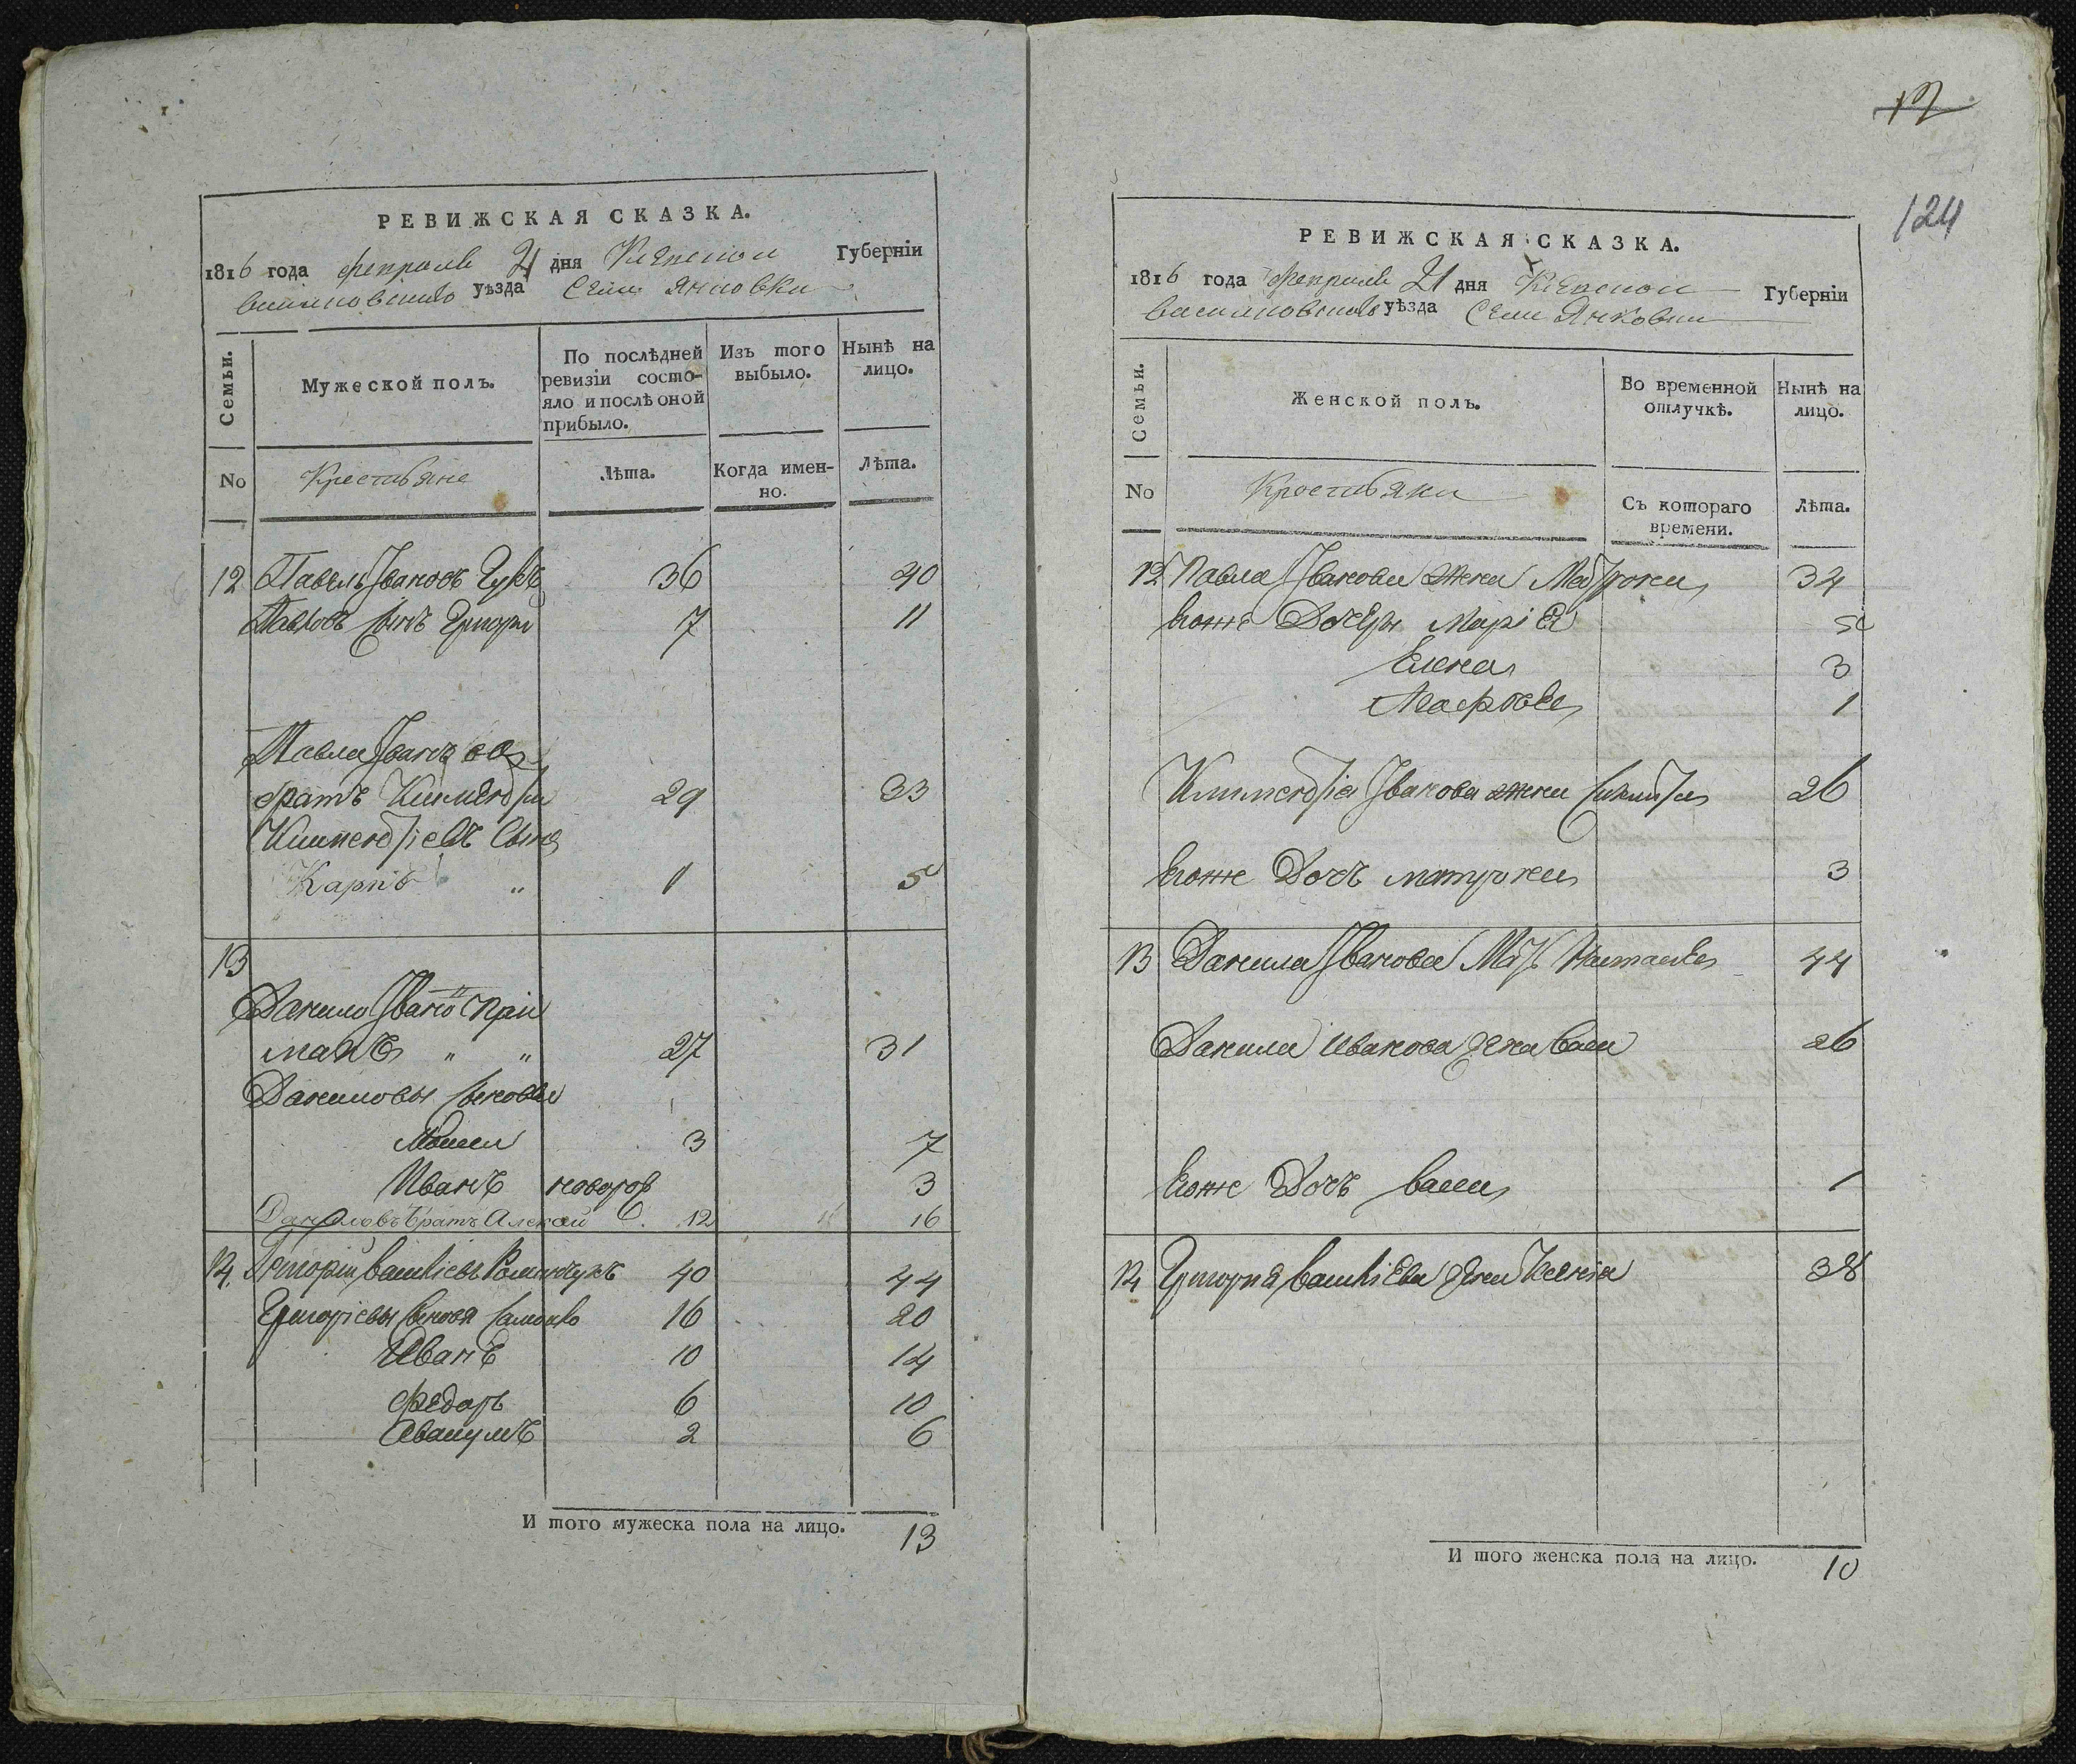 РЕВИЖСКАЯ СКАЗКА.
1816 года февраля 21 дня Кіевской Губерніи
васильковского уѣзда Села Янковки
Семьи.
Мужеской полъ.
По послѣдней ревизіи состояло и послѣ оной прибыло.
Изъ того выбыло.
Нынѣ на лицо.
No
Крестьяне
Лѣта.
Когда именно.
Лѣта.
12 Павелъ Ивановъ 36 40
Павловъ сынъ Григори 7 11
Павла Иванова
братъ Климентіи 29 33
Климентіевъ сынъ
Карпъ " 1 5
13
Данило Ивано Прій
макъ " " 27 31
Даниловы сыновья
3 7
Иванъ новорож 3
Даниловъ братъ Алексѣй 12 16
14. Григорій Василіевъ Романчукъ 40 44
Григоріевы сыновя Самойло 16 20
Иванъ 10 14
Федоръ 6 10
6
2
И того мужеска пола на лицо. 13
12
124
РЕВИЖСКАЯ СКАЗКА.
1816 года февраля 21 дня Кіевской Губерніи
васильковского уѣзда Села Янковки
Семьи.
Женской полъ.
Во временной отлучкѣ.
Нынѣ на лицо.
No
Крестьяки
Съ котораго времени.
Лѣта.
12 Павла Иванова жена Матрона 34
Егоже Дочеры Марія 5
Елена 3
1
Климентія Иванова жена 26
Егоже Дочь матрона 3
13 Данила Иванова Мать Наталія 44
Данила Иванова жена 26
Егоже Дочь 1
14 Григория Василіева жена Ксенія 38
И того женска пола на лицо. 10